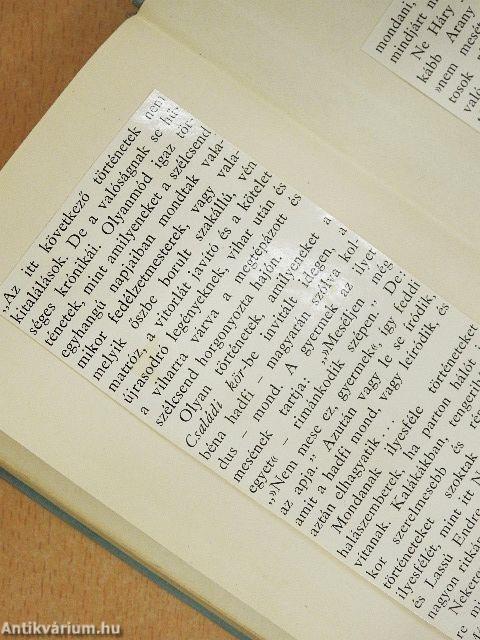 „Az itt következő történetek nem
kitalálások. De a valóságnak se hű-
séges krónikái. Olyanmód igaz tör-
ténetek, mint amilyeneket a szélcsend
egyhangú napjaiban mondtak vala-
mikor fedélzetmesterek, vagy vala-
melyik őszbe borult szakállú, vén
matróz, a vitorlát javító és a kötelet
újrasodró legényeknek, vihar után és
a viharra várva a megtépázott és
szélcsend horgonyozta hajón.
Olyan történetek, amilyeneket a
Családi kör-be invitált idegen, a
béna hadfi – magyarán szólva kol-
dus – mond. A gyermek az ilyet
mesének tartja: »„Meséljen még
egyet« – rimánkodik szépen.” De:
„»Nem mese ez, gyermek«, így feddi
az apja.” Azután vagy le se íródik,
amit a hadfi mond, vagy leíródik, és
aztán elhagyatik ...
Mondanak ilyesféle történeteket
halászemberek, ha parton hálót
vitanak. Kalákákban, tengerih
kor szerelmesebb és
történeteket szoktak
ilyesfélét, mint itt N
és Lassú Endre
nagyon ritkán
Nekere
se m
mondani,
mindjárt n
Ne Háry
kább Arany
»nem mesé
tosok
való
Antikvárium.hu